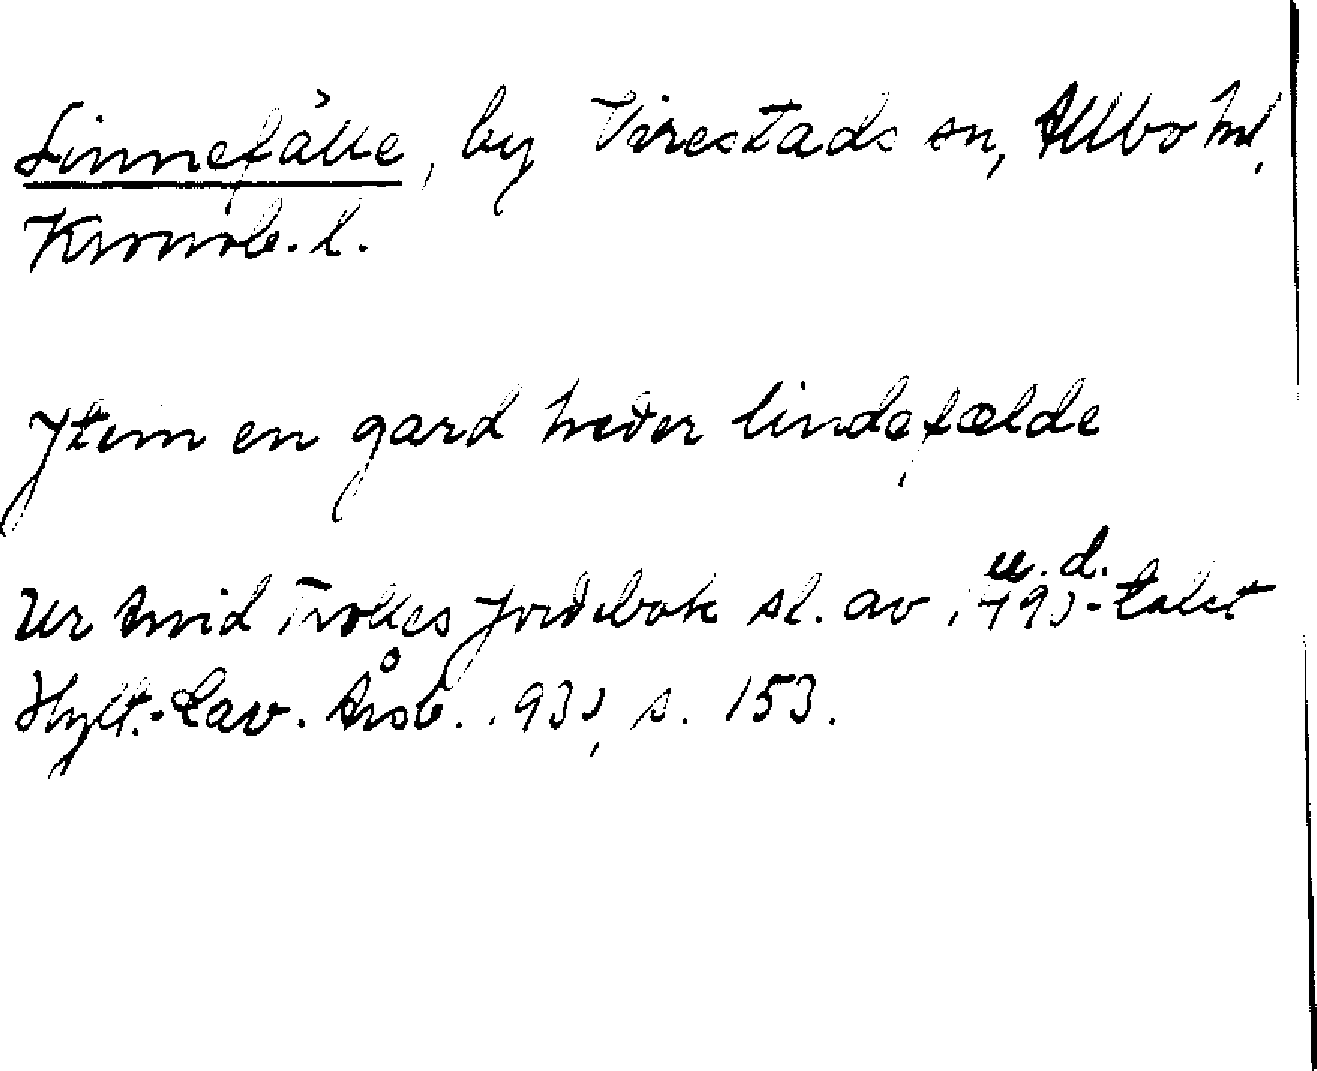 Linnefälle, by Virestads sn, Allbo hd,
Kronob. l.
Item en gard heder lindefælde
u. d.
Ur Arvid Trolles Jordebok sl. av 1490-talet
Hylt.-Cav. Årsb. 1930, s. 153.